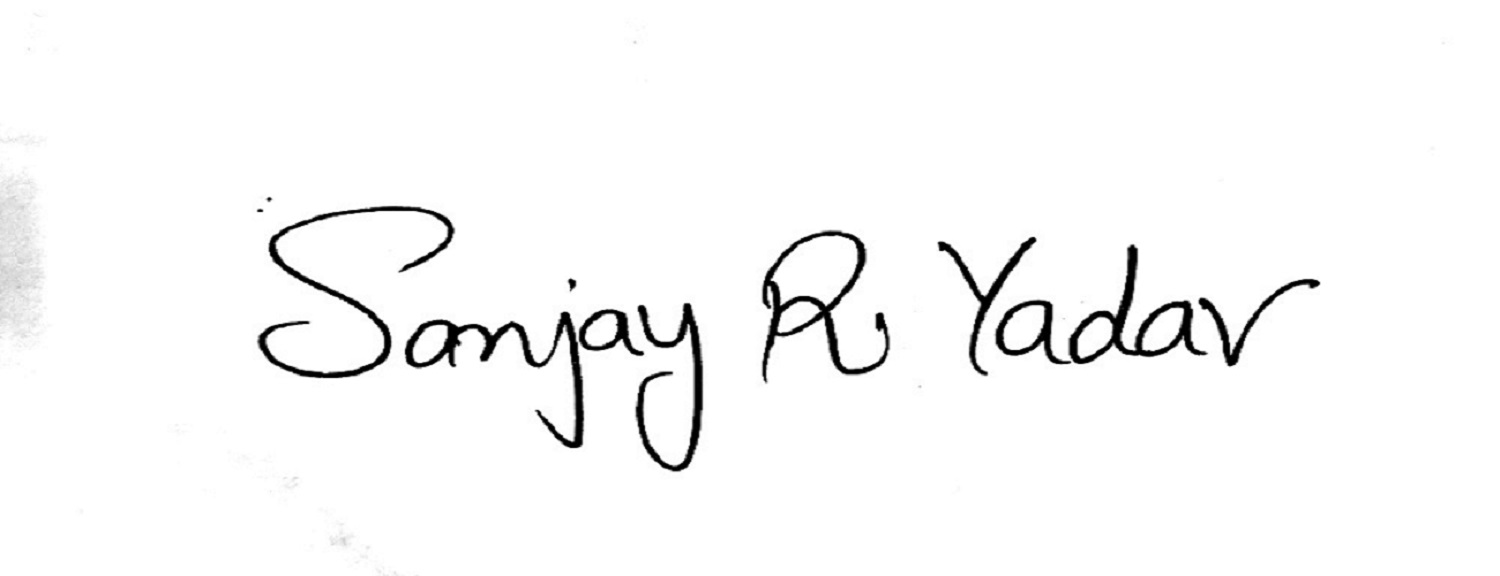 Sanjay R. Yadav